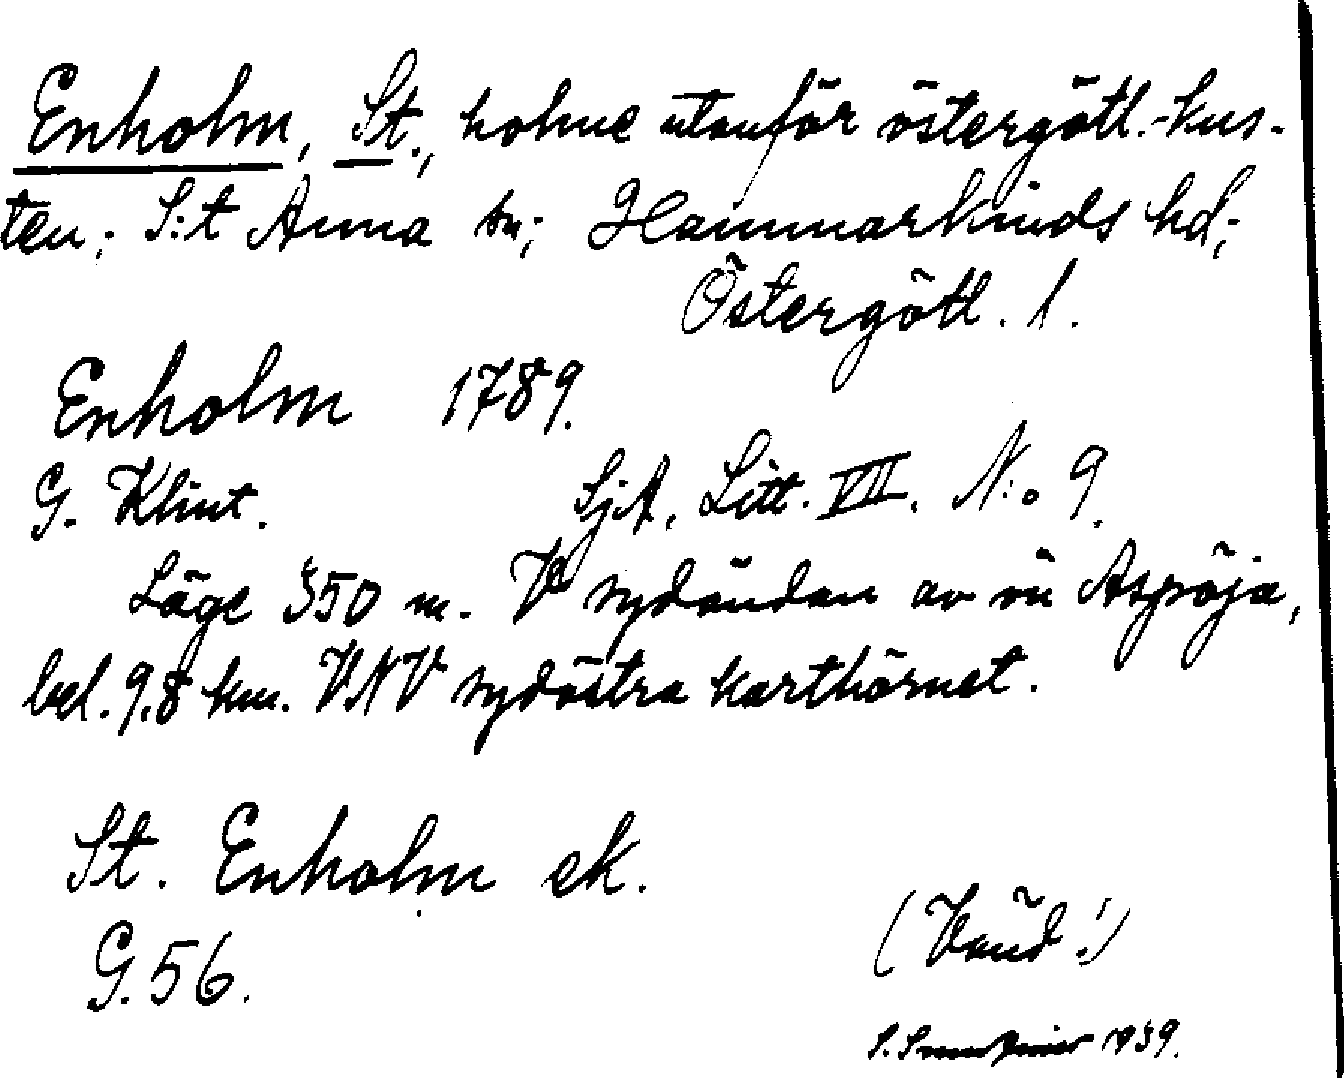 Enholm, St., holme utanför östergötl.-kus-
ten; S:t Anna sn; Hammarkinds hd;
Östergötl. l.
Enholm 1789.
G. Klint. SjA, Litt. VII. N:o 9.
Läge 350 m. V sydändan av ön Aspöja,
bel. 9.8 km. VNV sydöstra karthörnet.
St. Enholm ek.
G. 56.
(Vänd!)
S. 1939.